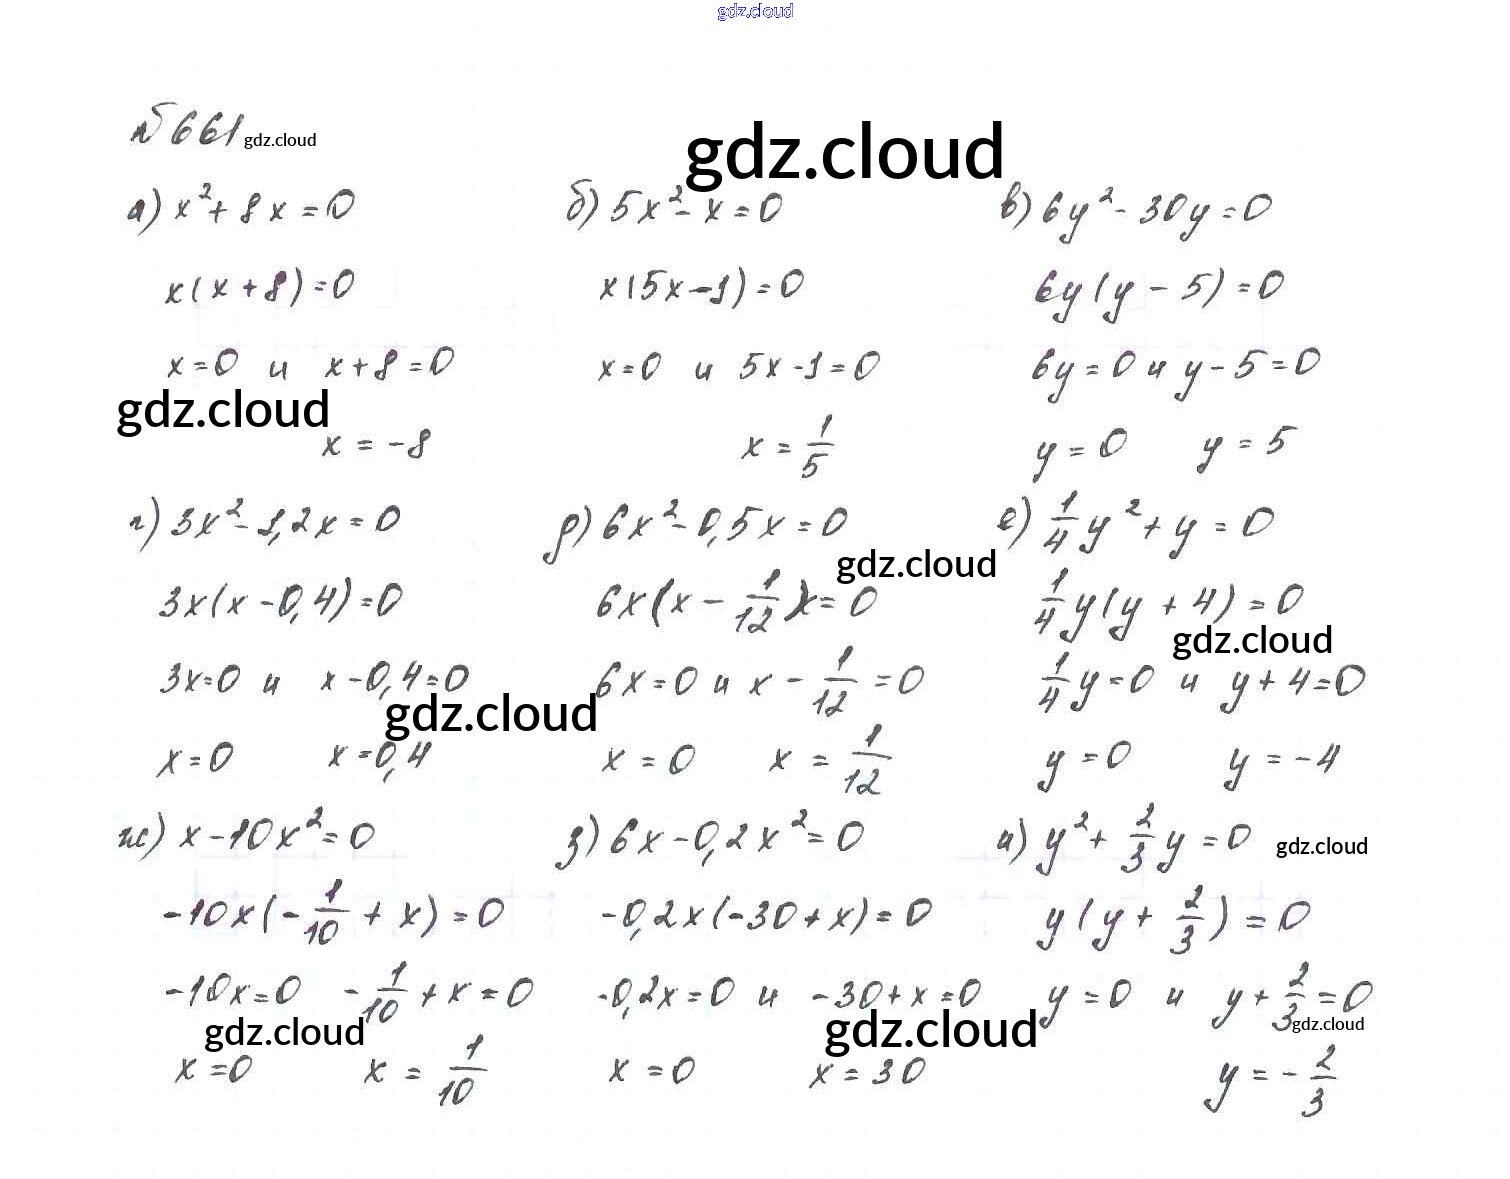 gdz.cloud
№ 661 gdz.cloud
gdz.cloud
а) x² + 8x = 0
x(x + 8) = 0
x = 0 и x + 8 = 0
gdz.cloud
x = -8
б) 5x² - x = 0
x(5x - 1) = 0
x = 0 и 5x - 1 = 0
x = 1/5
в) 6y² - 30y = 0
6y(y - 5) = 0
6y = 0 и y - 5 = 0
y = 0 y = 5
г) 3x² - 1,2x = 0
3x(x - 0,4) = 0
3x = 0 и x - 0,4 = 0
gdz.cloud
x = 0 x = 0,4
д) 6x² - 0,5x = 0
gdz.cloud
6x(x - 1/12) = 0
6x = 0 и x - 1/12 = 0
x = 0 x = 1/12
е) 1/4 y² + y = 0
1/4 y(y + 4) = 0
gdz.cloud
1/4 y = 0 и y + 4 = 0
y = 0 y = -4
ж) x - 10x² = 0
-10x(-1/10 + x) = 0
-10x = 0 -1/10 + x = 0
gdz.cloud
x = 0 x = 1/10
з) 6x - 0,2x² = 0
-0,2x(-30 + x) = 0
-0,2x = 0 и -30 + x = 0
gdz.cloud
x = 0 x = 30
и) y² + 2/3 y = 0 gdz.cloud
y(y + 2/3) = 0
y = 0 и y + 2/3 = 0
gdz.cloud
y = -2/3